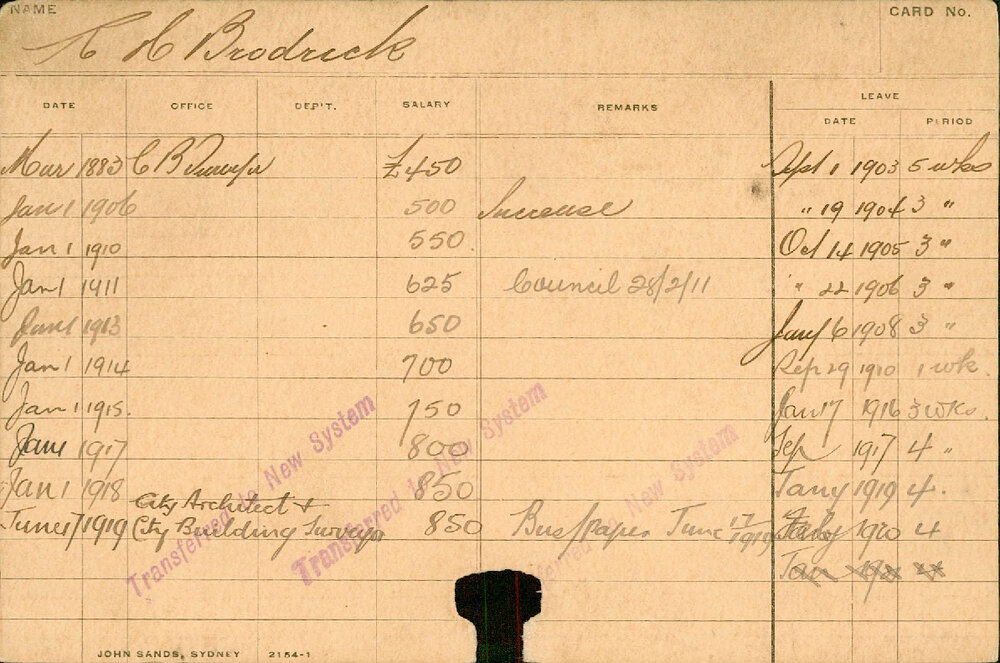 NAME
CARD No.
H Brodrick
DATE OFFICE DEP'T. SALARY REMARKS LEAVE
DATE PERIOD
Mar 1883 C B Surveyor £450 Sept 1 1903 5 wks
Jan 1 1906 500 Increase " 19 1904 3 "
Jan 1 1910 550. Oct 14 1905 3 "
Jan 1 1911 625 Council 28/2/11 " 22 1906 3 "
1913 650 Jany 6 1908 3 "
Jan 1 1914 700 Sep 29 1910 1 wk.
Jan 1 1915. 750 Jan 17 1916 3 wks.
Jan 1 1917 800 Sep 1917 4 "
Jan 1 1918 850 Jany 1919 4.
City Architect +
June 17 1919 City Building Surveyor 850 Bus/papers June 17/1919 1920 4
Jan
Transferred to New System
Transferred to New System
Transferred to New System
JOHN SANDS, SYDNEY 2154-1